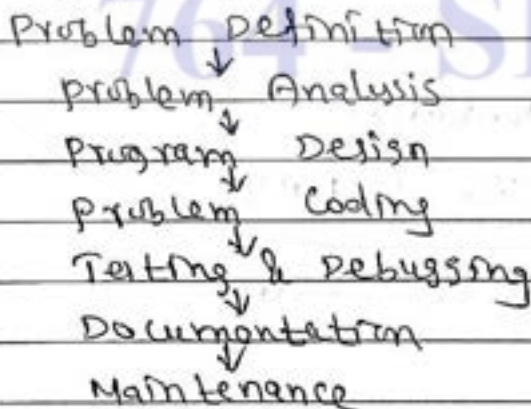 764 - S
Problem Definition
↓
problem Analysis
↓
Program Design
↓
Problem Coding
↓
Testing & Debugging
↓
Documentation
↓
Maintenance